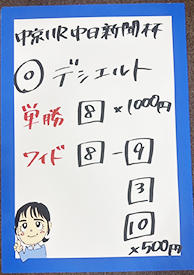 中京11R中日新聞杯
◎ デシエルト
単勝 8 ×1000円
ワイド 8 - 9
3
10
×500円